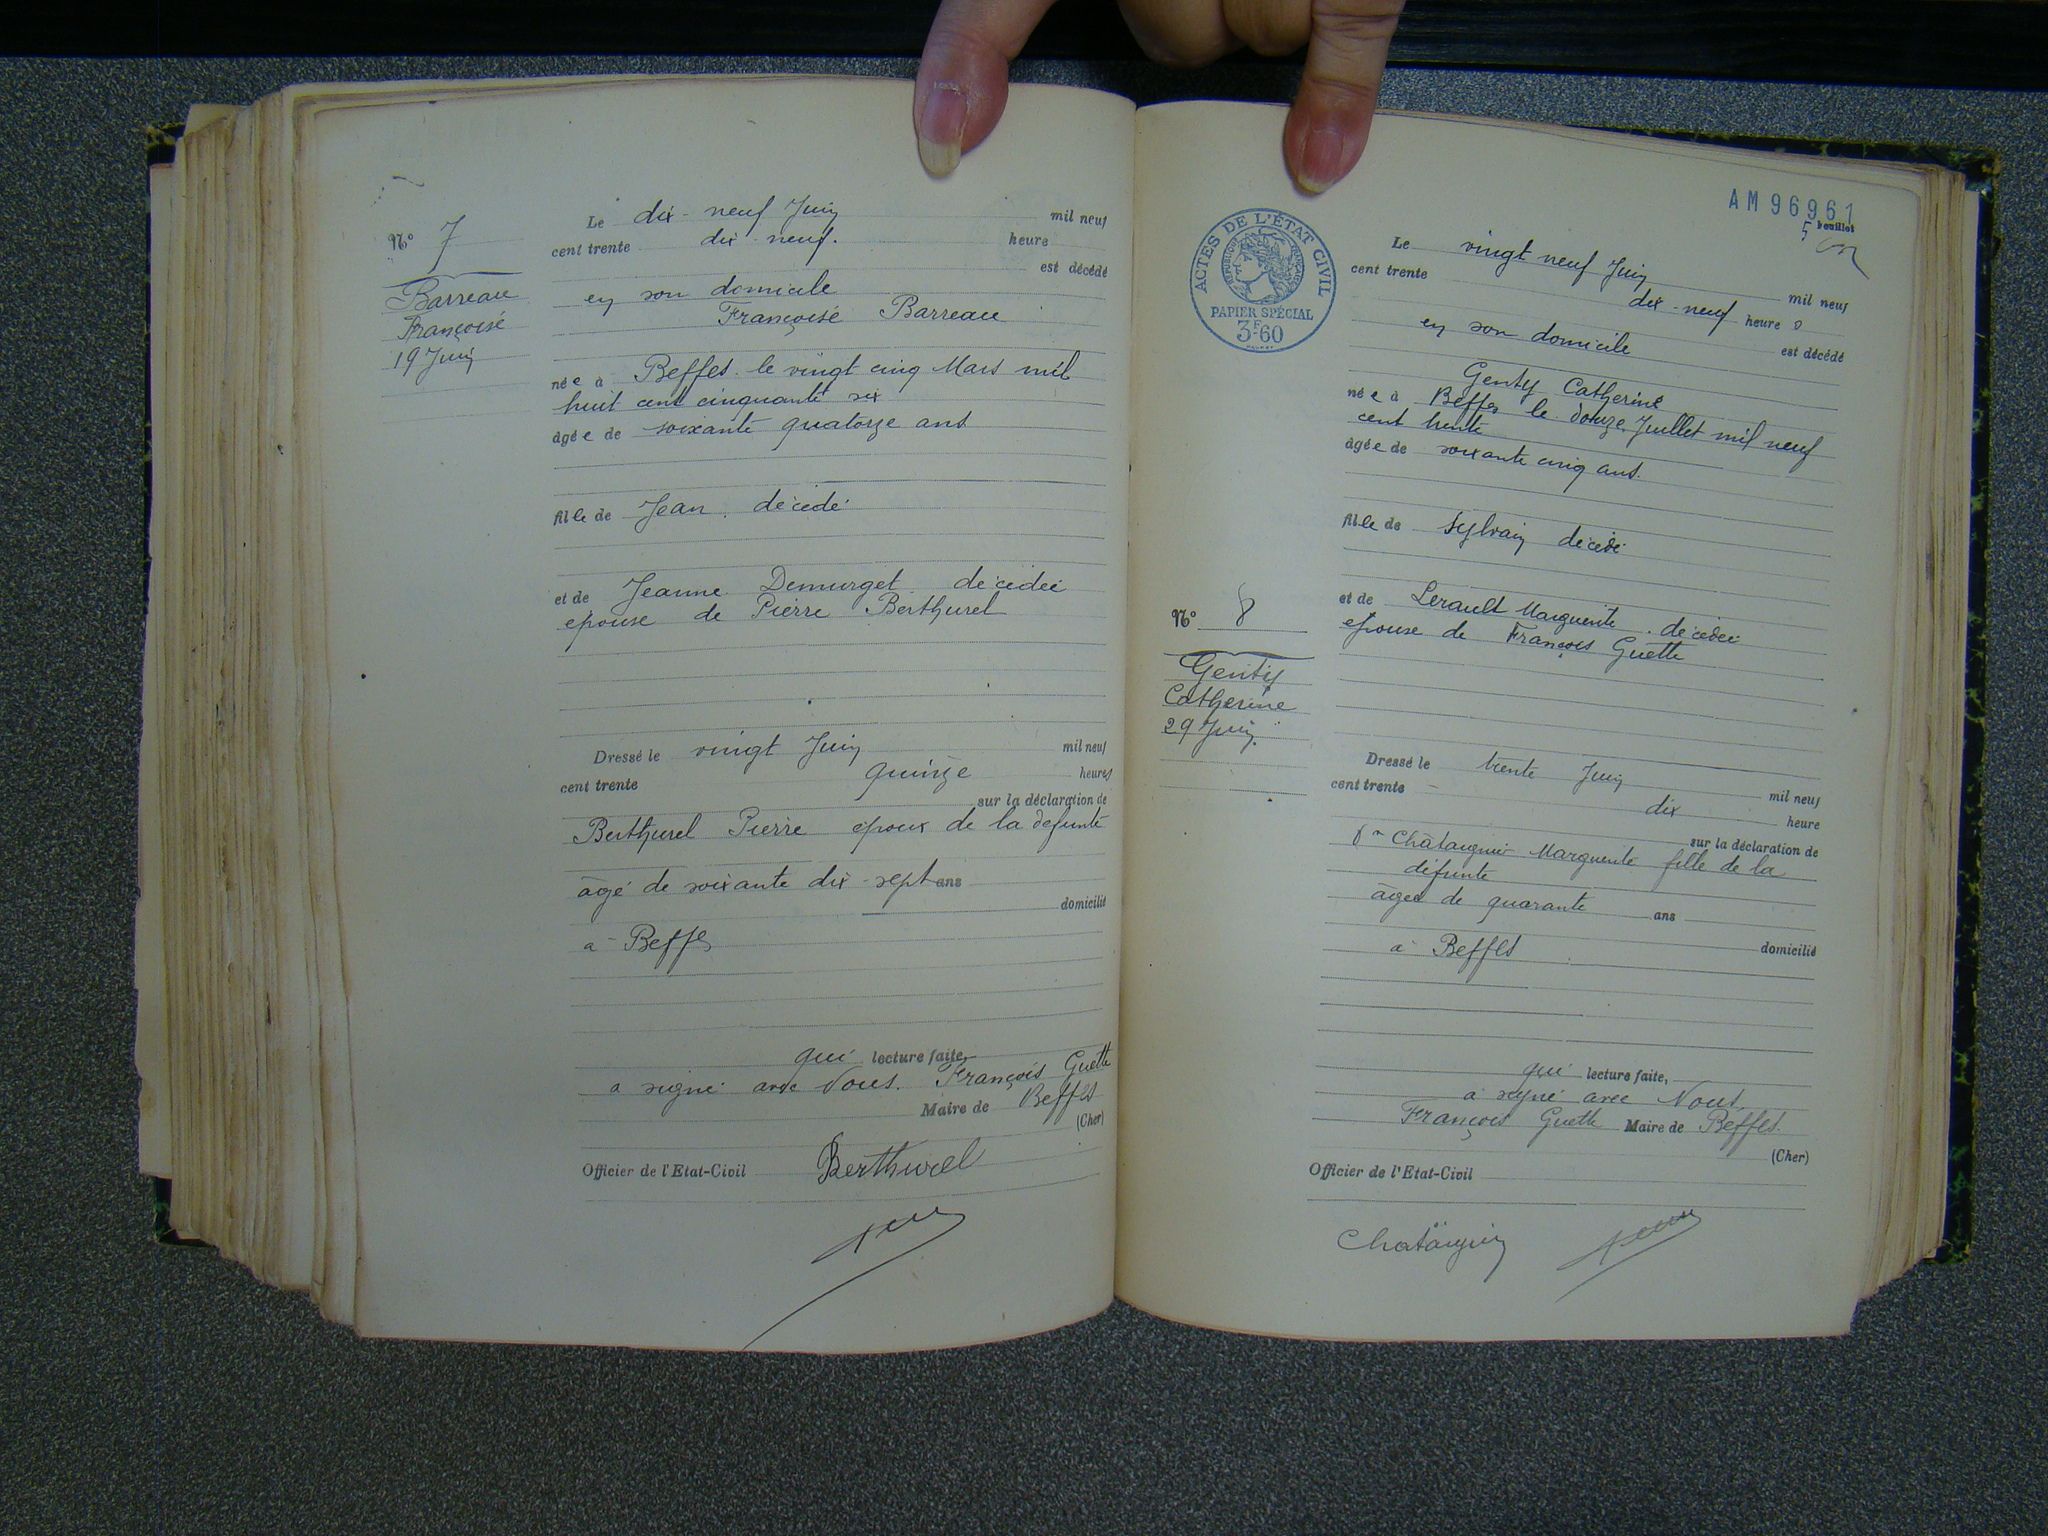 N° 7
Barreau
Françoise
19 Juin
Le dix-neuf Juin mil neuf
cent trente dix-neuf. heure
est décédé
en son domicile
Françoise Barreau
née à Beffes le vingt cinq Mars mil
huit cent cinquante six
âgée de soixante quatorze ans
fille de Jean, décédé
et de Jeanne Demurget décédée
épouse de Pierre Berthurel
Dressé le vingt Juin mil neuf
cent trente quinze heures
sur la déclaration de
Berthurel Pierre époux de la défunte
âgé de soixante dix-sept ans
domicilié
à Beffes
qui lecture faite,
a signé avec Nous. François Guette
Maire de Beffes
(Cher)
Officier de l'Etat-Civil
Berthurel
AM 96961
5 feuillet
ACTES DE L'ÉTAT CIVIL
RÉPUBLIQUE FRANÇAISE
PAPIER SPÉCIAL
3F60
N° 8
Genty
Catherine
29 Juin
Le vingt neuf Juin mil neuf
cent trente dix-neuf heure s
est décédé
en son domicile
Genty Catherine
née à Beffes le douze Juillet mil neuf
cent trente
âgée de soixante cinq ans.
fille de Sylvain décédé
et de Lerault Marguerite décédée
épouse de François Guette
Dressé le trente Juin mil neuf
cent trente dix heure
sur la déclaration de
Chataignier Marguerite fille de la
défunte
âgée de quarante ans
domicilié
à Beffes
qui lecture faite,
a signé avec Nous,
François Guette Maire de Beffes.
(Cher)
Officier de l'Etat-Civil